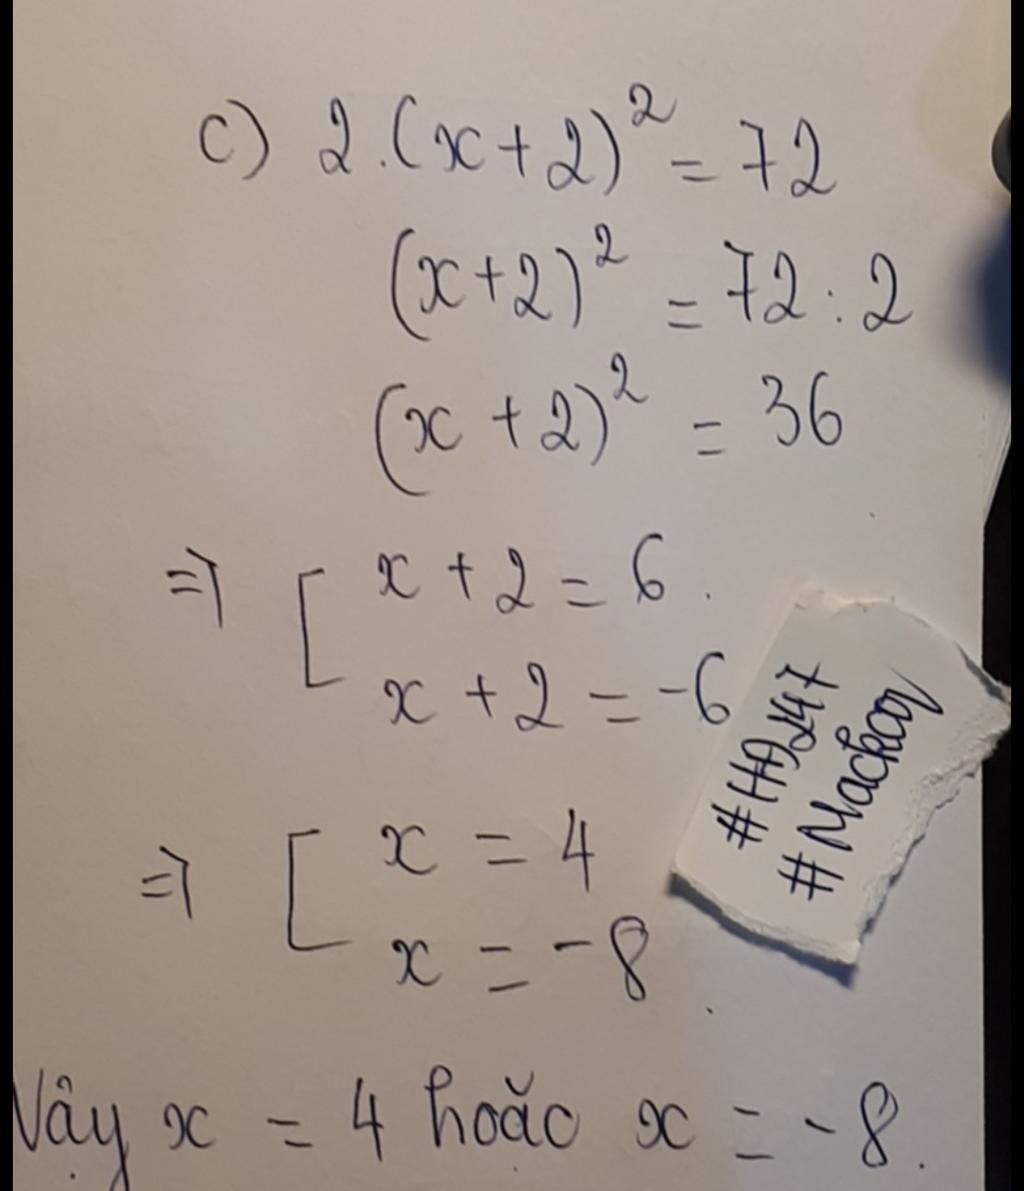 c) 2.(x+2)² = 72
(x+2)² = 72 : 2
(x+2)² = 36
=> [ x + 2 = 6.
x + 2 = -6
=> [ x = 4
x = -8.
Vậy x = 4 hoặc x = -8.
#HĐ247